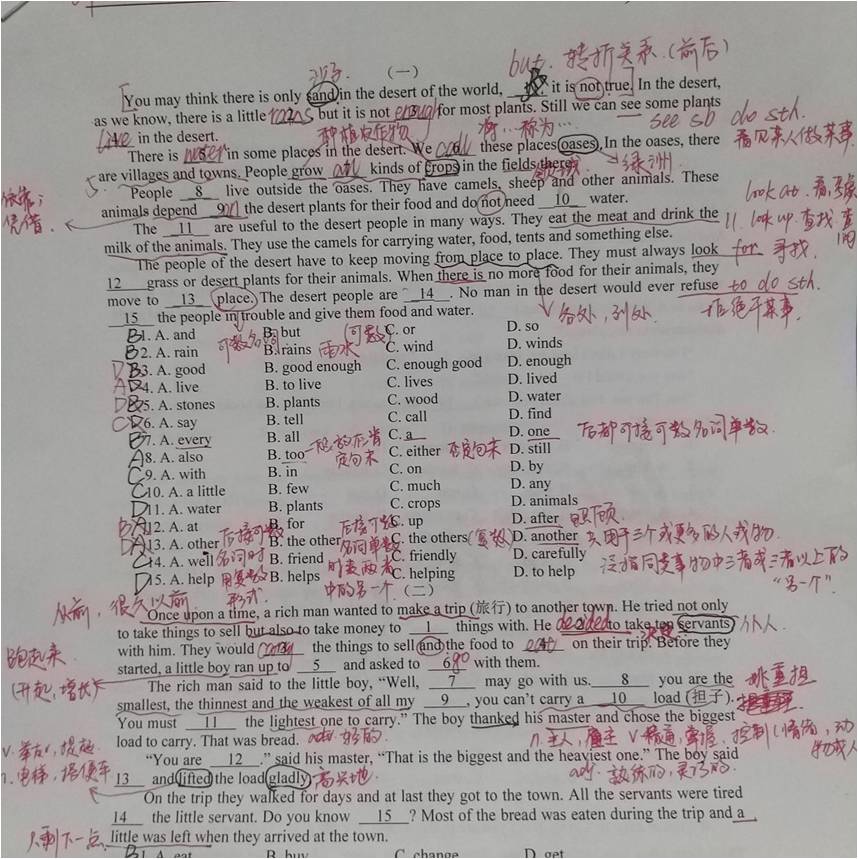 沙子. (一) but. 转折关系.(前后)
You may think there is only sand in the desert of the world, it is not true. In the desert,
as we know, there is a little rains but it is not enough for most plants. Still we can see some plants
see sb do sth.
live in the desert.
看见某人做某事.
There is water in some places in the desert. We call these places oases. In the oases, there
are villages and towns. People grow all kinds of crops in the fields there.
绿洲
依靠;
凭借.
People 8 live outside the oases. They have camels, sheep and other animals. These
animals depend on the desert plants for their food and do not need 10 water.
The 11 are useful to the desert people in many ways. They eat the meat and drink the
look up. 查找
milk of the animals. They use the camels for carrying water, food, tents and something else.
The people of the desert have to keep moving from place to place. They must always look for 寻找.
12 grass or desert plants for their animals. When there is no more food for their animals, they
move to 13 place. The desert people are 14 . No man in the desert would ever refuse to do sth.
15 the people in trouble and give them food and water.
各处, 到处.
拒绝干某事.
B1. A. and B. but C. or D. so
B2. A. rain B. rains C. wind D. winds
可数名词 雨水 (可数)
3. A. good B. good enough C. enough good D. enough
4. A. live B. to live C. lives D. lived
5. A. stones B. plants C. wood D. water
6. A. say B. tell C. call D. find
7. A. every B. all C. a D. one
后都可接可数名词单数.
8. A. also B. too C. either D. still
一般放在肯定句末 否定句末
9. A. with B. in C. on D. by
10. A. a little B. few C. much D. any
11. A. water B. plants C. crops D. animals
12. A. at B. for C. up D. after 照顾.
13. A. other B. the other C. the others (复数) D. another 只用于三个或更多的人或物.
14. A. well B. friend C. friendly D. carefully
泛指同类事物中三者或三者以上的
“另一个”.
15. A. help B. helps C. helping D. to help
中的另一个 (二)
从前, 很久以前
Once upon a time, a rich man wanted to make a trip (旅行) to another town. He tried not only
to take things to sell but also to take money to 1 things with. He decided to take ten servants 仆人.
with him. They would carry the things to sell and the food to eat on their trip. Before they
跑起来
started, a little boy ran up to 5 and asked to go with them.
The rich man said to the little boy, “Well, 7 may go with us. 8 you are the
挑重担
smallest, the thinnest and the weakest of all my 9 , you can’t carry a 10 load (担子).
You must 11 the lightest one to carry.” The boy thanked his master and chose the biggest
load to carry. That was bread.
“You are 12 .” said his master, “That is the biggest and the heaviest one.” The boy said
13 and lifted the load gladly. 高兴地.
n. 电梯, 搭便车
On the trip they walked for days and at last they got to the town. All the servants were tired
14 the little servant. Do you know 15 ? Most of the bread was eaten during the trip and a
只剩下一点 little was left when they arrived at the town.
1. A. eat B. buy C. change D. get